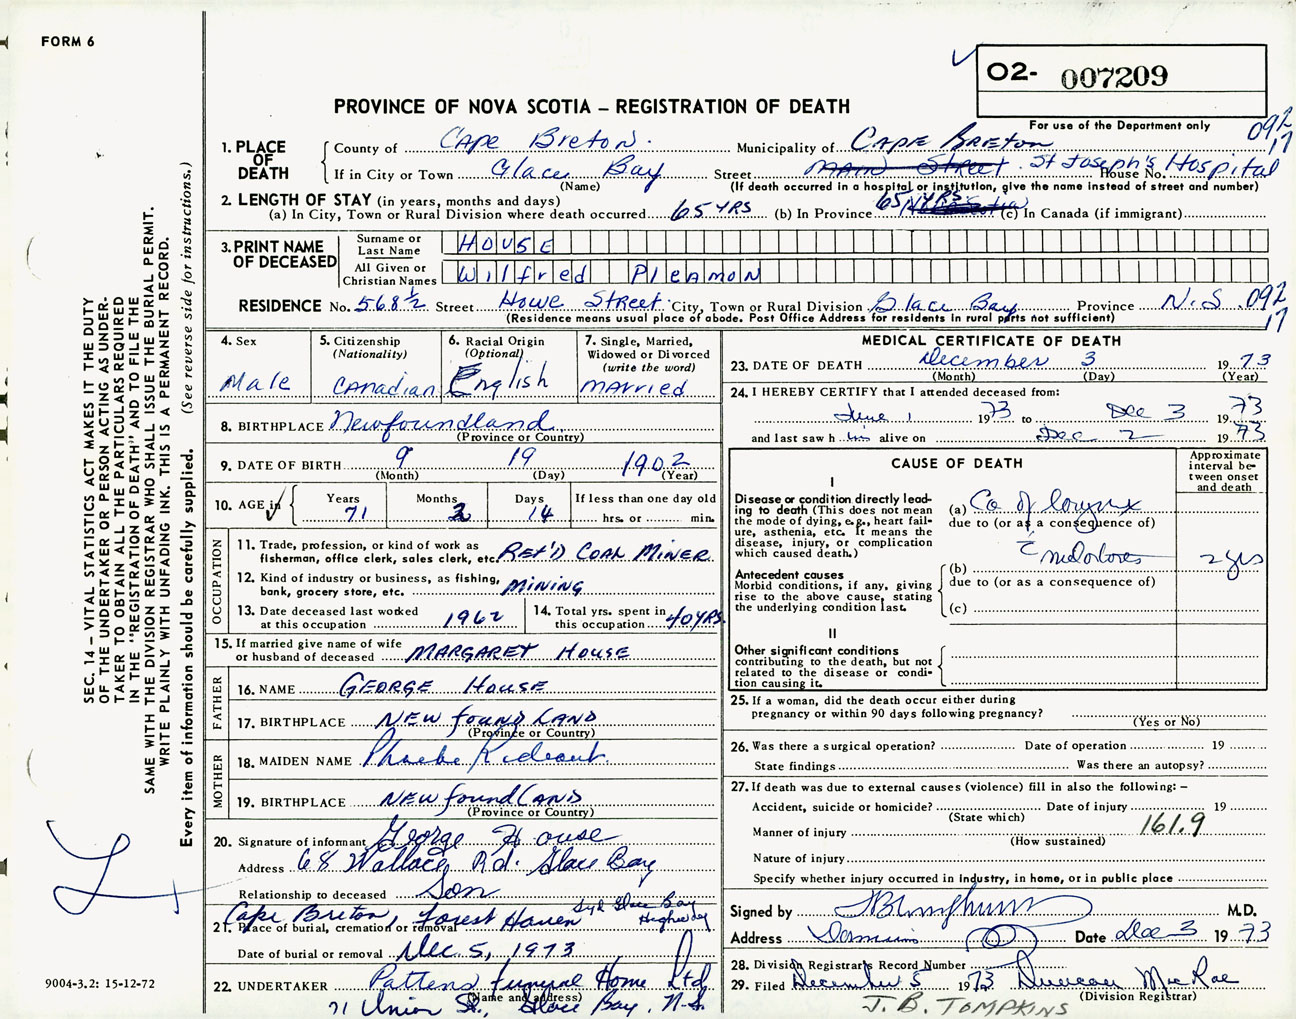 FORM 6
02- 007209
PROVINCE OF NOVA SCOTIA – REGISTRATION OF DEATH
For use of the Department only
092
17
1. PLACE OF DEATH
County of Cape Breton. Municipality of Cape Breton
If in City or Town Glace Bay Street Main Street. St Joseph's Hospital House No.
(Name) (If death occurred in a hospital or institution, give the name instead of street and number)
2. LENGTH OF STAY (in years, months and days)
(a) In City, Town or Rural Division where death occurred 65 YRS (b) In Province 65 YRS. (c) In Canada (if immigrant)
3. PRINT NAME OF DECEASED
Surname or Last Name HOUSE
All Given or Christian Names Wilfred PLEAMON
RESIDENCE No. 568½ Street Howe Street. City, Town or Rural Division Glace Bay Province N.S. 092
17
(Residence means usual place of abode. Post Office Address for residents in rural parts not sufficient)
4. Sex
Male
5. Citizenship
(Nationality)
Canadian
6. Racial Origin
(Optional)
English
7. Single, Married, Widowed or Divorced
(write the word)
Married
8. BIRTHPLACE Newfoundland.
(Province or Country)
9. DATE OF BIRTH 9 19 1902
(Month) (Day) (Year)
10. AGE in
Years Months Days If less than one day old
71 2 14 hrs. or min.
OCCUPATION
11. Trade, profession, or kind of work as
fisherman, office clerk, sales clerk, etc. Ret'd Coal Miner
12. Kind of industry or business, as fishing,
bank, grocery store, etc. Mining
13. Date deceased last worked
at this occupation 1962
14. Total yrs. spent in
this occupation 40 YRS.
15. If married give name of wife
or husband of deceased Margaret House
FATHER
16. NAME George House
17. BIRTHPLACE Newfoundland
(Province or Country)
MOTHER
18. MAIDEN NAME Phoebe Rideout.
19. BIRTHPLACE Newfoundland
(Province or Country)
20. Signature of informant George House
Address 68 Wallace Rd. Glace Bay
Relationship to deceased Son
Cape Breton, Forest Haven Syd Glace Bay Highway
21. Place of burial, cremation or removal
Date of burial or removal Dec. 5, 1973
22. UNDERTAKER Pattens Funeral Home Ltd
(Name and address)
71 Union St., Glace Bay, N.S.
MEDICAL CERTIFICATE OF DEATH
23. DATE OF DEATH December 3 1973
(Month) (Day) (Year)
24. I HEREBY CERTIFY that I attended deceased from:
June 1 1973 to Dec 3 1973
and last saw h im alive on Dec 2 1973
CAUSE OF DEATH
Approximate interval between onset and death
I
Disease or condition directly leading to death (This does not mean the mode of dying, e.g., heart failure, asthenia, etc. It means the disease, injury, or complication which caused death.)
(a) Ca of larynx
due to (or as a consequence of)
Antecedent causes
Morbid conditions, if any, giving rise to the above cause, stating the underlying condition last.
(b) 2 yrs
due to (or as a consequence of)
(c)
II
Other significant conditions
contributing to the death, but not related to the disease or condition causing it.
25. If a woman, did the death occur either during
pregnancy or within 90 days following pregnancy?
(Yes or No)
26. Was there a surgical operation? Date of operation 19
State findings Was there an autopsy?
27. If death was due to external causes (violence) fill in also the following: –
Accident, suicide or homicide? Date of injury 19
(State which)
161.9
Manner of injury
(How sustained)
Nature of injury
Specify whether injury occurred in industry, in home, or in public place
Signed by M.D.
Address Date Dec 3 1973
28. Division Registrar's Record Number
29. Filed December 5 1973 Duncan MacRae
(Division Registrar)
J. B. TOMPKINS
SEC. 14 – VITAL STATISTICS ACT MAKES IT THE DUTY
OF THE UNDERTAKER OR PERSON ACTING AS UNDER-
TAKER TO OBTAIN ALL THE PARTICULARS REQUIRED
IN THE "REGISTRATION OF DEATH" AND TO FILE THE
SAME WITH THE DIVISION REGISTRAR WHO SHALL ISSUE THE BURIAL PERMIT.
WRITE PLAINLY WITH UNFADING INK. THIS IS A PERMANENT RECORD.
Every item of information should be carefully supplied. (See reverse side for instructions.)
9004-3.2: 15-12-72